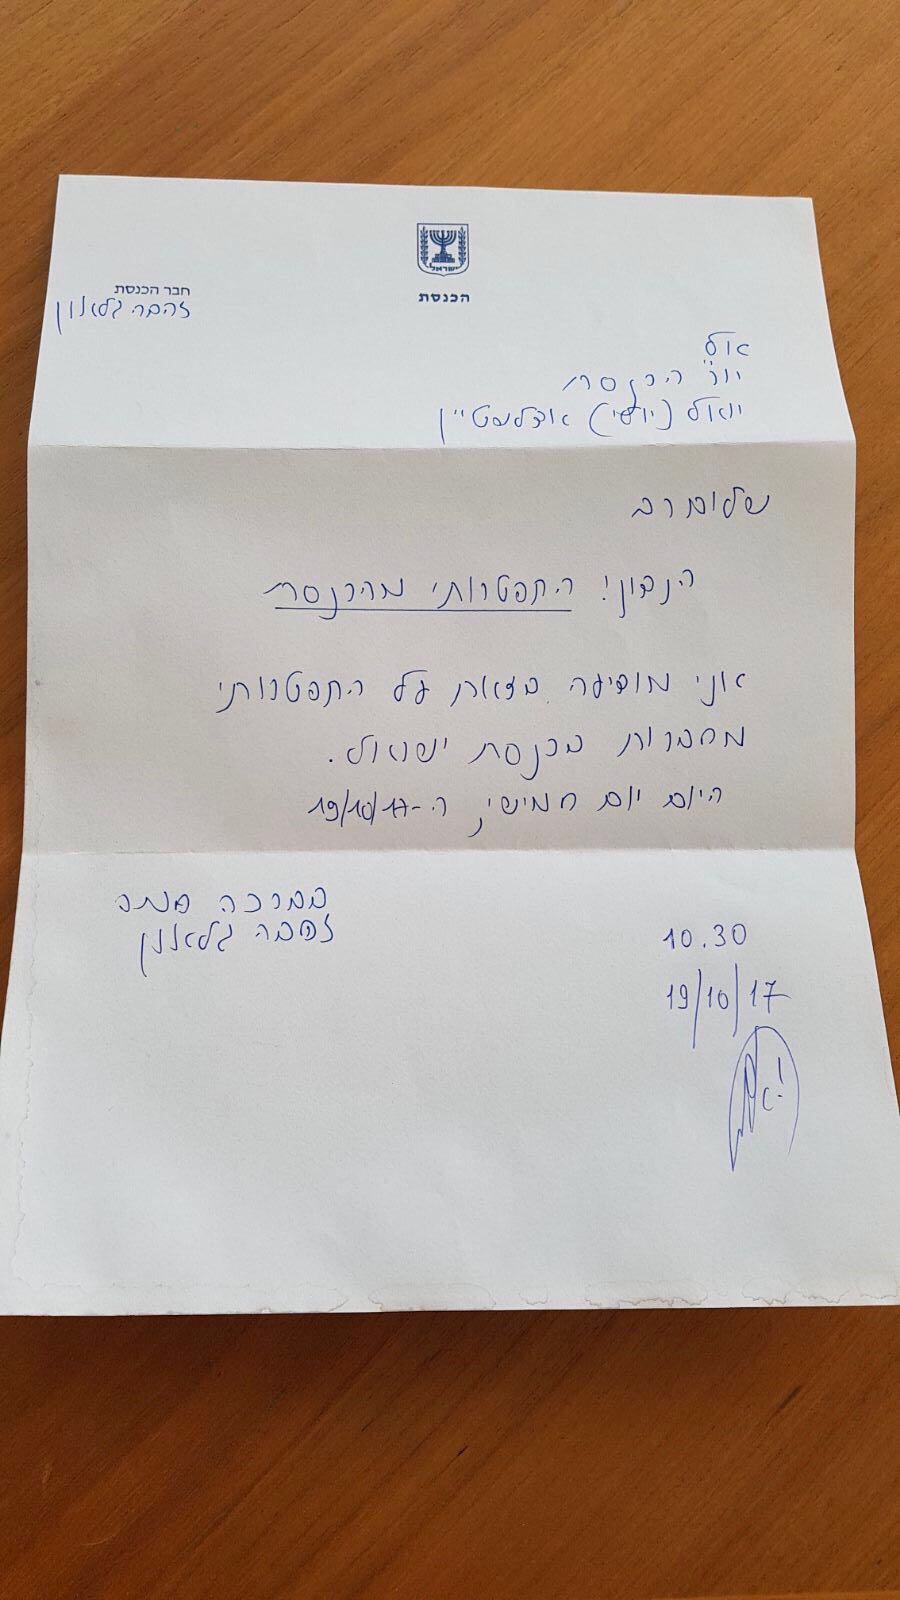 ישראל
הכנסת
חבר הכנסת
זהבה גלאון
אל
יו"ר הכנסת
יואל (יולי) אדלשטיין
שלום רב
הנדון: התפטרותי מהכנסת
אני מודיעה בזאת על התפטרותי
מחברות בכנסת ישראל.
היום יום חמישי ה-19/10/17
בברכה
זהבה גלאון
10.30
19/10/17